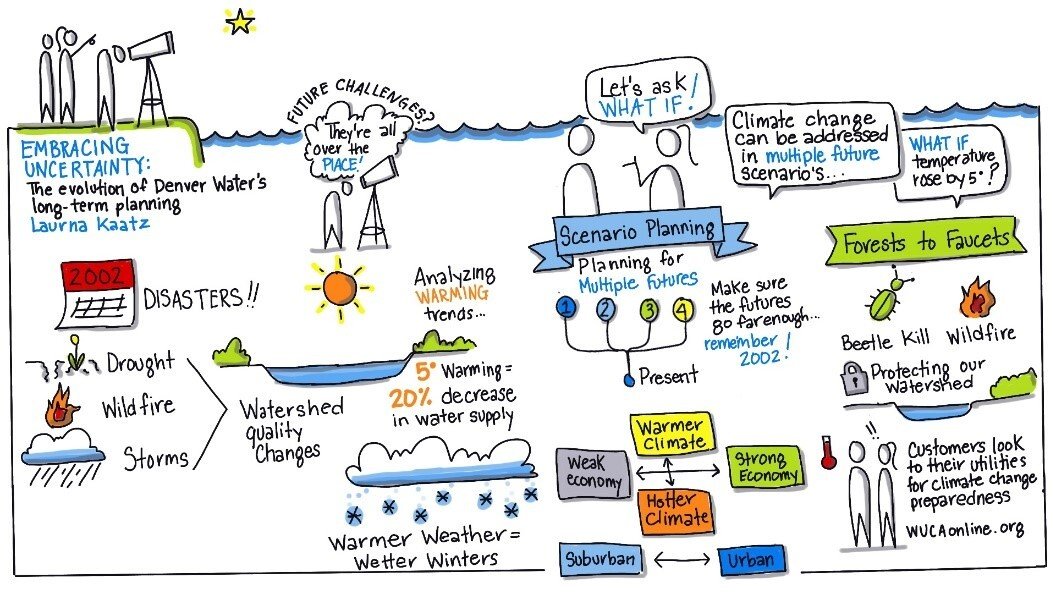 EMBRACING
UNCERTAINTY:
The evolution of Denver Water's
long-term planning
Laurna Kaatz
2002
DISASTERS!!
Drought
Wildfire
Storms
Watershed
quality
Changes
FUTURE CHALLENGES?
They're all
over the
PLACE!
Analyzing
WARMING
trends...
5° Warming =
20% decrease
in water supply
Warmer Weather =
Wetter Winters
Let's ask
WHAT IF!
Scenario Planning
Planning for
Multiple Futures
1 2 3 4
Present
Make sure
the futures
go far enough...
remember
2002!
Warmer
Climate
Weak
economy
Strong
Economy
Hotter
Climate
Suburban
Urban
Climate change
can be addressed
in multiple future
scenario's...
WHAT IF
temperature
rose by 5°?
Forests to Faucets
Beetle Kill
Wildfire
Protecting our
watershed
!!
Customers look
to their utilities
for climate change
preparedness
WUCAonline.org